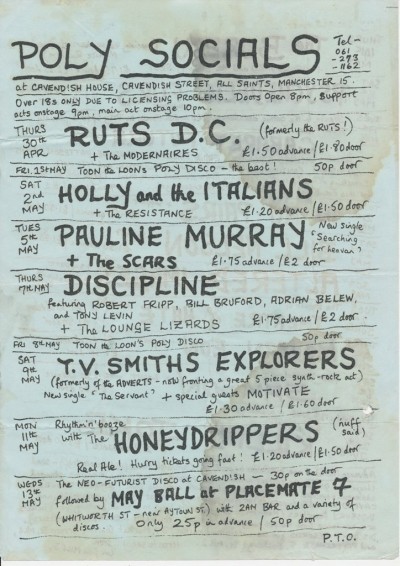 POLY SOCIALS
Tel-
061
-273
-1162
at CAVENDISH HOUSE, CAVENDISH STREET, ALL SAINTS, MANCHESTER 15.
Over 18s ONLY DUE TO LICENSING PROBLEMS. Doors Open 8pm, support
acts onstage 9pm, main act onstage 10pm.
THURS
30th
APR
RUTS D.C. (formerly the RUTS!)
+ The MODERNAIRES £1.50 advance/£1.80 door
FRI. 1st MAY TOON the LOON'S POLY DISCO - the best! 50p door
SAT
2nd
MAY
HOLLY and the ITALIANS
+ The RESISTANCE £1.20 advance/£1.50 door
TUES
5th
MAY
PAULINE MURRAY
New single
'Searching
for heaven'
+ The SCARS £1.75 advance/£2 door
THURS
7th MAY
DISCIPLINE
featuring ROBERT FRIPP, BILL BRUFORD, ADRIAN BELEW,
and TONY LEVIN
+ The LOUNGE LIZARDS £1.75 advance/£2 door.
FRI 8th MAY TOON the LOON'S POLY DISCO 50p door
SAT
9th
MAY
T.V. SMITHS EXPLORERS
(formerly of the ADVERTS - now fronting a great 5 piece synth-rock act)
New single 'The Servant' + special guests MOTIVATE
£1.30 advance/£1.60 door
MON
11th
MAY
Rhythm'n'booze
with The HONEYDRIPPERS
(nuff
said)
Real Ale! Hurry tickets going fast! £1.20 advance/£1.50 door
WEDS
13th
MAY
The NEO-FUTURIST DISCO at CAVENDISH - 30p on the door
followed by MAY BALL at PLACEMATE 7
(WHITWORTH ST - near AYTOUN ST) with 2AM BAR and a variety of
discos. Only 25p in advance / 50p door
P.T.O.